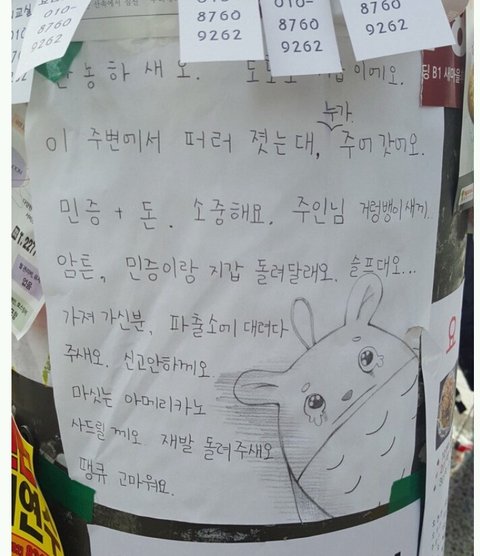 010-
8760
9262
010-
8760
9262
010-
8760
9262
딩 B1 새마을
안농하새오. 토토로 지갑이에오.
누가
이 주변에서 떠러젓는대, 주어갓어오.
민증 + 돈. 소중해요. 주인님 거렁뱅이새끼..
암튼, 민증이랑 지갑 돌려달래오. 슬프대오...
가져가신분, 파출소에 대려다
주새오. 신고안하께오
마싯는 아메리카노
사드릴께오 재발 돌려주새오
땡큐 고마워요.
없음
요